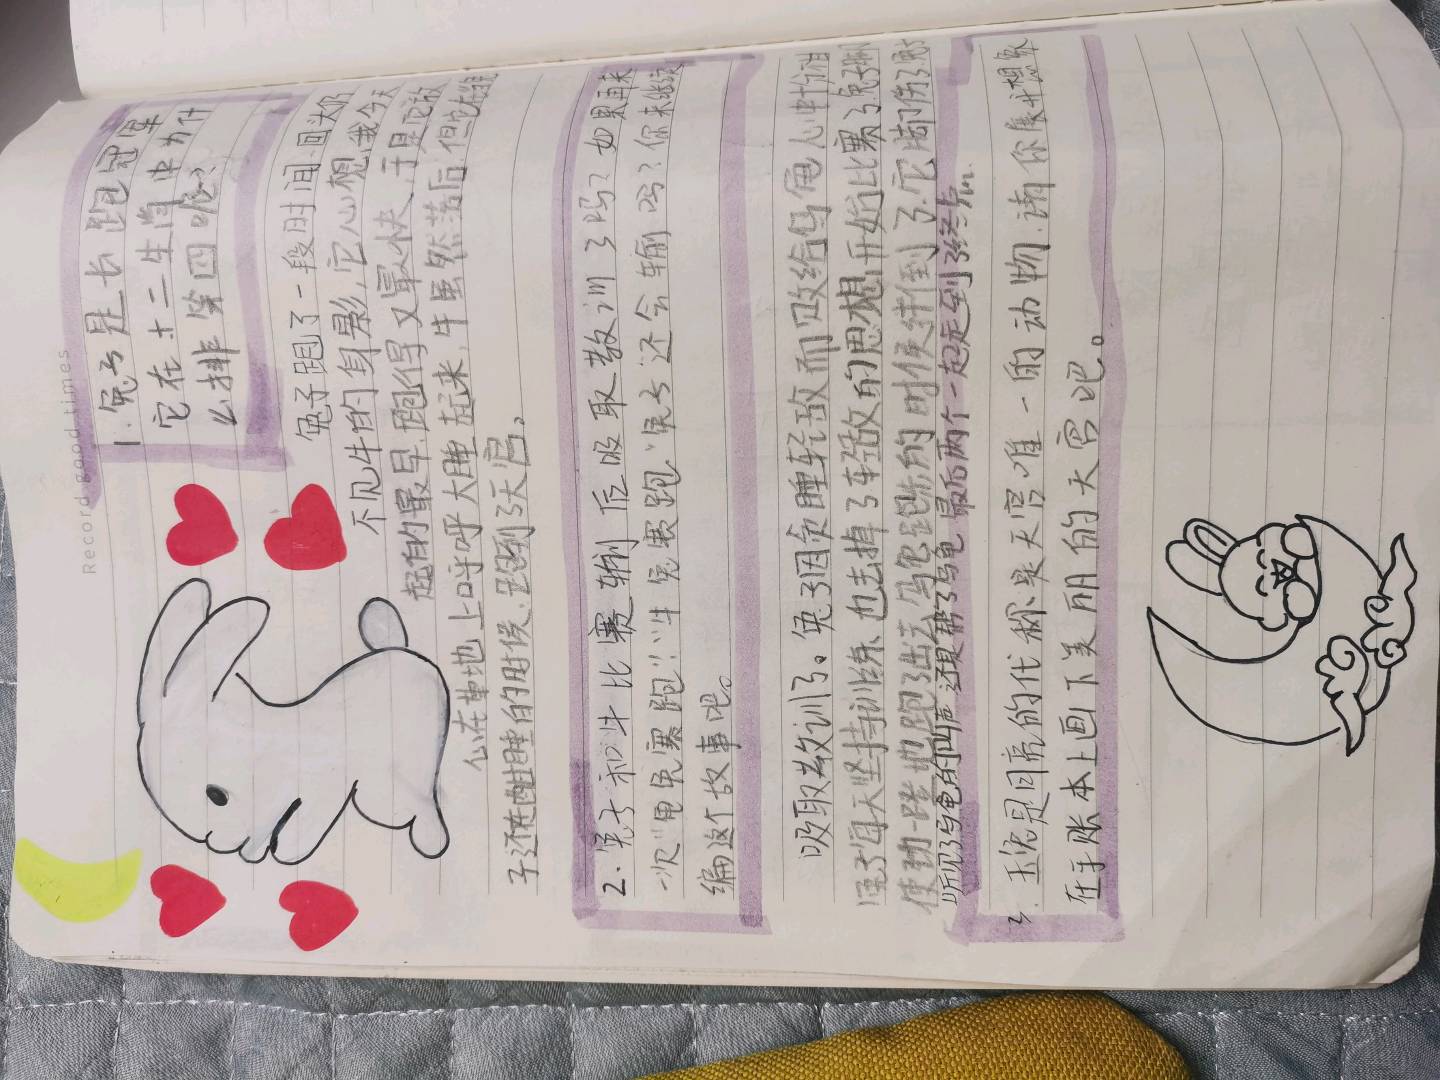 Record good times
1. 兔子是长跑冠军
它在十二生肖中为什
么排第四呢?
兔子跑了一段时间,回头仍
不见牛的身影,它心想,我今天
起的最早,跑得又最快,于是它放
心在草地上呼呼大睡起来,牛虽然落后,但它在兔
子还在酣睡的时候,跑到了天宫。
2. 兔子和牛比赛输后吸取教训了吗?如果再来
一次“龟兔赛跑”“牛兔赛跑”兔子还会输吗?你来继续
编这个故事吧。
吸取教训了。兔子因贪睡轻敌而败给乌龟心中
每天坚持训练,也去掉了轻敌的思想,开始比赛了兔子
使劲一蹬地跑出去,乌龟跑的时候绊倒了,它脚伤了,兔子
听见乌龟的叫声,还是帮了乌龟,最后两个一起走到了终点。
3. 玉兔是月亮的代称,是天宫唯一的动物,请你展开想象
在手账本上画下美丽的天宫吧。